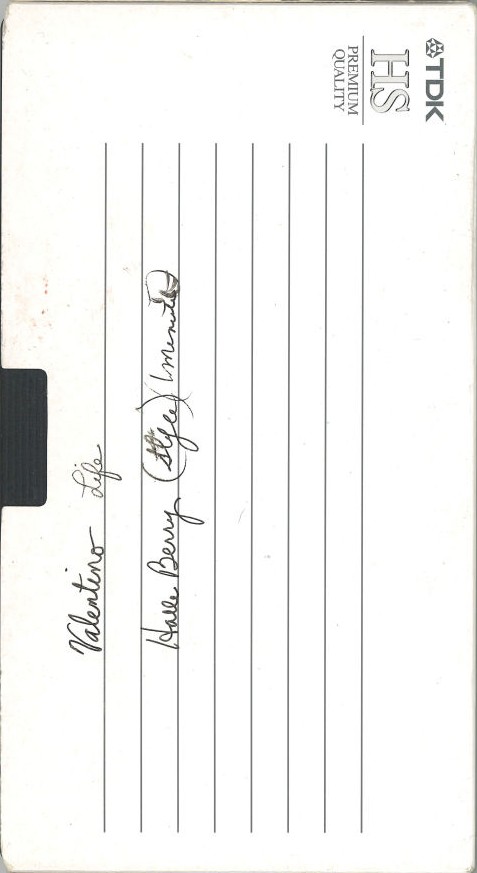 TDK
HS
PREMIUM
QUALITY
Valentino Life
Halle Berry (style)